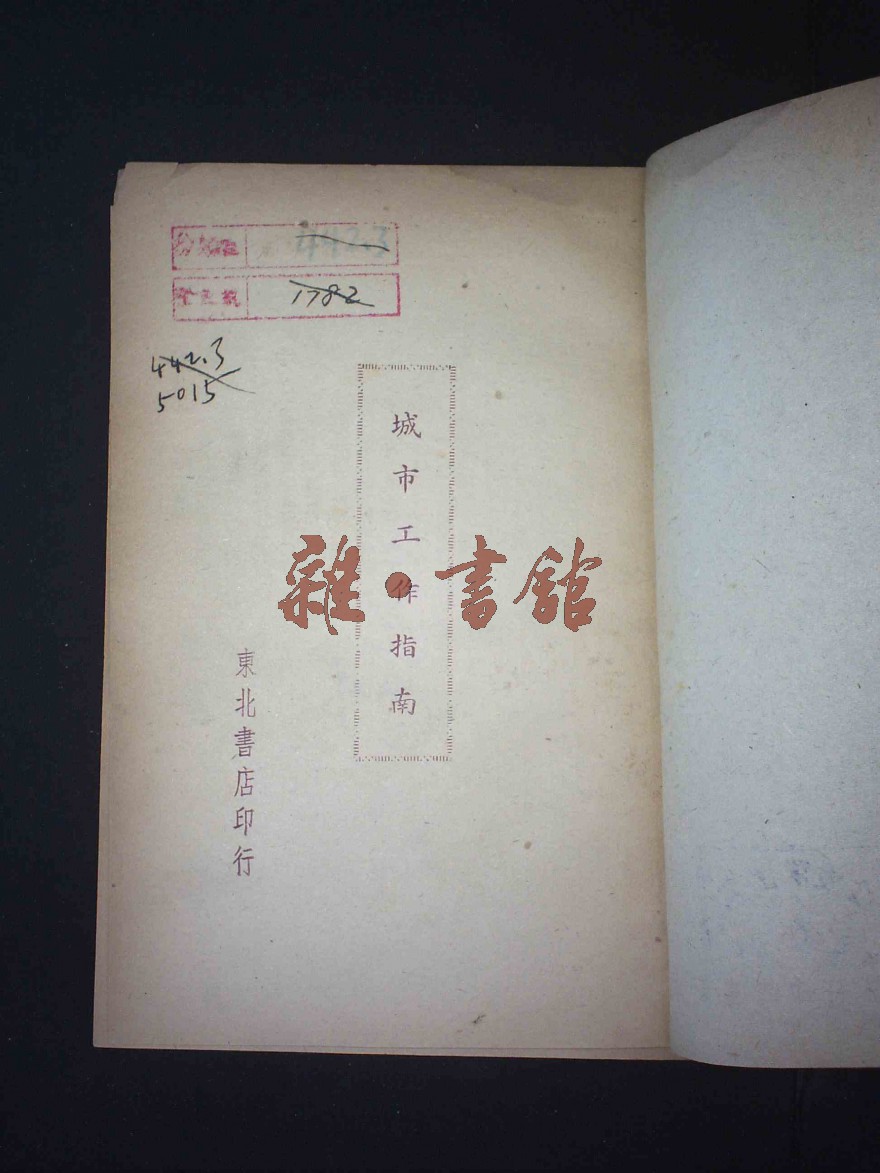 分類號 442.3
登記號 1782
442.3
5015
城市工作指南
東北書店印行
雜·書館